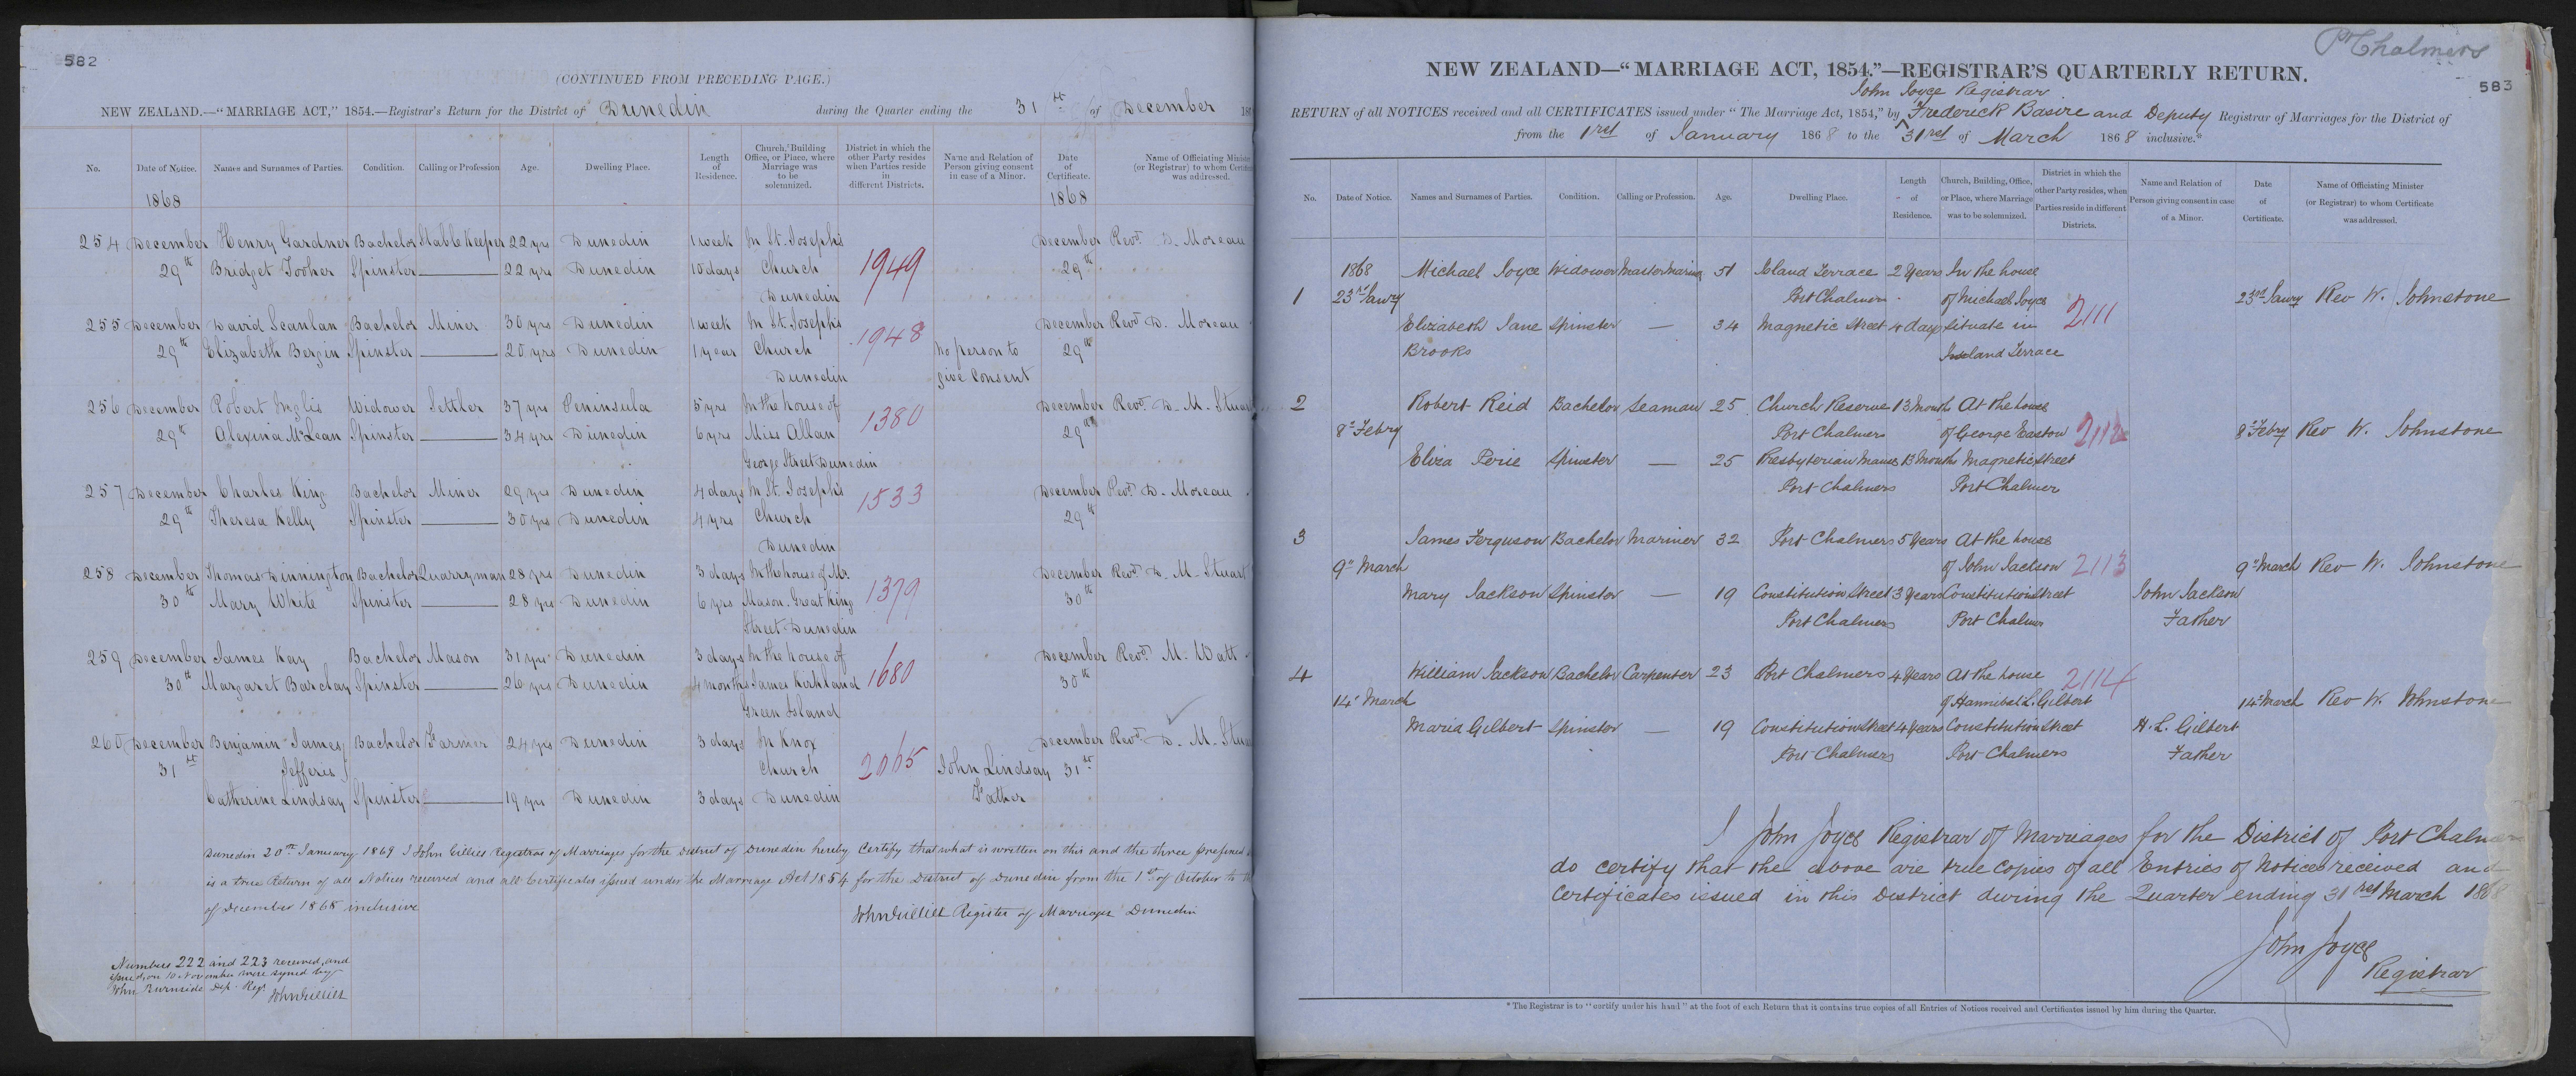 582
(CONTINUED FROM PRECEDING PAGE.)
NEW ZEALAND.—"MARRIAGE ACT," 1854.—Registrar's Return for the District of Dunedin during the Quarter ending the 31st of December 18
No. Date of Notice. Names and Surnames of Parties. Condition. Calling or Profession Age. Dwelling Place. Length of Residence. Church, Building Office, or Place, where Marriage was to be solemnized. District in which the other Party resides when Parties reside in different Districts. Name and Relation of Person giving consent in case of a Minor. Date of Certificate. Name of Officiating Minister (or Registrar) to whom Certificate was addressed.
1868 1868
254 December Henry Gardner Bachelor Stable Keeper 22 yrs Dunedin 1 week In St. Joseph's December Revd. D. Moreau
29th Bridget Tooher Spinster — 22 yrs Dunedin 10 days Church 1949 29th
Dunedin
255 December David Scanlan Bachelor Miner 30 yrs Dunedin 1 week In St. Joseph's December Revd. D. Moreau
29th Elizabeth Bergin Spinster — 20 yrs Dunedin 1 year Church 1948 No person to 29th
Dunedin give Consent
256 December Robert Inglis Widower Settler 37 yrs Peninsula 5 yrs In the house of December Revd. D. M. Stuart
29th Alexina McLean Spinster — 34 yrs Dunedin 6 yrs Miss Allan 1380 29th
George Street Dunedin
257 December Charles King Bachelor Miner 29 yrs Dunedin 4 days In St. Joseph's December Revd. D. Moreau
29th Theresa Kelly Spinster — 30 yrs Dunedin 4 yrs Church 1533 29th
Dunedin
258 December Thomas Dinnington Bachelor Quarryman 28 yrs Dunedin 3 days In the house of Mr. December Revd. D. M. Stuart
30th Mary White Spinster — 28 yrs Dunedin 6 yrs Mason. Great King 1379 30th
Street Dunedin
259 December James Kay Bachelor Mason 31 yrs Dunedin 3 days In the house of December Revd. M. Watt
30th Margaret Barclay Spinster — 26 yrs Dunedin 4 months James Kirkland 1680 30th
Green Island
260 December Benjamin James Bachelor Farmer 24 yrs Dunedin 3 days In Knox December Revd. D. M. Stuart
31st Jefferis Church 2065 John Lindsay 31st
Catherine Lindsay Spinster — 19 yrs Dunedin 3 days Dunedin Father
Dunedin 20th January 1869 I John Gillies Registrar of Marriages for the District of Dunedin hereby Certify that what is written on this and the three prefixed
is a true Return of all Notices received and all Certificates issued under the Marriage Act 1854 for the District of Dunedin from the 1st of October to
of December 1868 inclusive
John Gillies Register of Marriages Dunedin
Numbers 222 and 223 received, and
issued, on 10 November were signed by
John Burnside Dep. Regr.
John Gillies
Pt Chalmers
583
NEW ZEALAND—"MARRIAGE ACT, 1854."—REGISTRAR'S QUARTERLY RETURN.
John Joyce Registrar
RETURN of all NOTICES received and all CERTIFICATES issued under "The Marriage Act, 1854," by Frederick Basire and Deputy Registrar of Marriages for the District of
from the 1rst of January 1868 to the 31rst of March 1868 inclusive.*
No. Date of Notice. Names and Surnames of Parties. Condition. Calling or Profession. Age. Dwelling Place. Length of Residence. Church, Building, Office, or Place, where Marriage was to be solemnized. District in which the other Party resides, when Parties reside in different Districts. Name and Relation of Person giving consent in case of a Minor. Date of Certificate. Name of Officiating Minister (or Registrar) to whom Certificate was addressed.
1868 Michael Joyce Widower Master Marine 51 Island Terrace 2 Years In the house
1 23rd Jawry Port Chalmers of Michael Joyce 2111 23rd Jawry Rev W. Johnstone
Elizabeth Jane Spinster — 34 Magnetic Street 4 days situate in
Brooks Island Terrace
2 Robert Reid Bachelor Seaman 25 Church Reserve 13 Months At the house
8th Febry Port Chalmers of George Easton 2112 8th Febry Rev W. Johnstone
Eliza Perie Spinster — 25 Presbyterian Manse 13 Months Magnetic Street
Port Chalmers Port Chalmer
3 James Ferguson Bachelor Mariner 32 Port Chalmers 5 Years At the house
9th March of John Jackson 2113 9th March Rev W. Johnstone
Mary Jackson Spinster — 19 Constitution Street 3 Years Constitution Street John Jackson
Port Chalmers Port Chalmers Father
4 William Jackson Bachelor Carpenter 23 Port Chalmers 4 Years At the house 2114
14th March of Hannibal L. Gilbert 14th March Rev W. Johnstone
Maria Gilbert Spinster — 19 Constitution Street 4 Years Constitution Street H. L. Gilbert
Port Chalmers Port Chalmers Father
I John Joyce Registrar of Marriages for the District of Port Chalmers
do certify that the above are true copies of all Entries of Notices received and
Certificates issued in this District during the Quarter ending 31rst March 1868
John Joyce
Registrar
*The Registrar is to "certify under his hand" at the foot of each Return that it contains true copies of all Entries of Notices received and Certificates issued by him during the Quarter.